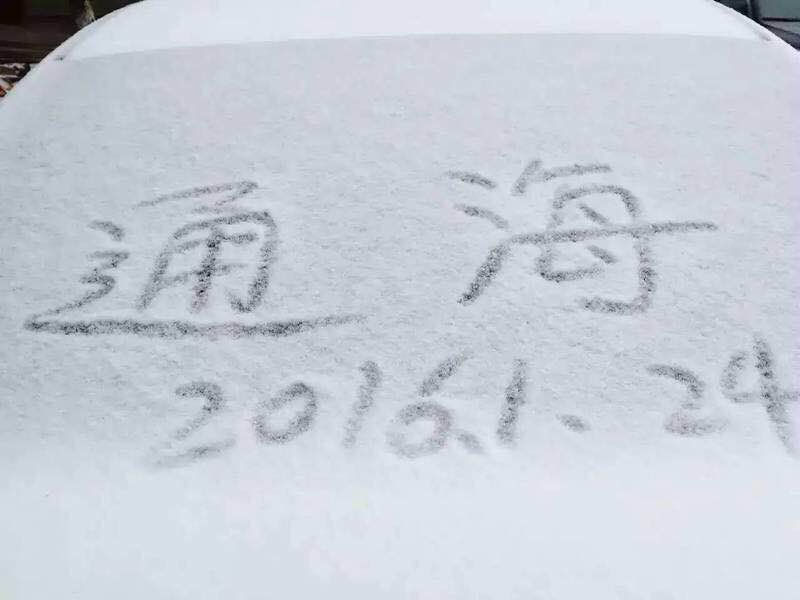 通海
2016.1.24